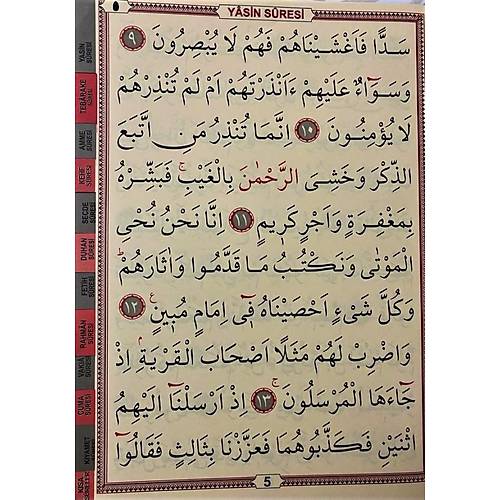 YÂSİN SÛRESİ
سَدًّا فَاَغْشَيْنَاهُمْ فَهُمْ لَا يُبْصِرُونَ ٩
وَسَوَٓاءٌ عَلَيْهِمْ ءَاَنْذَرْتَهُمْ اَمْ لَمْ تُنْذِرْهُمْ
لَا يُؤْمِنُونَ ١٠ اِنَّمَا تُنْذِرُ مَنِ اتَّبَعَ
الذِّكْرَ وَخَشِىَ الرَّحْمٰنَ بِالْغَيْبِۚ فَبَشِّرْهُ
بِمَغْفِرَةٍ وَاَجْرٍ كَرِيمٍ ١١ اِنَّا نَحْنُ نُحْىِ
الْمَوْتٰى وَنَكْتُبُ مَا قَدَّمُوا وَاٰثَارَهُمْۜ
وَكُلَّ شَىْءٍ اَحْصَيْنَاهُ فٖٓى اِمَامٍ مُبٖينٍ ١٢
وَاضْرِبْ لَهُمْ مَثَلًا اَصْحَابَ الْقَرْيَةِۢ اِذْ
جَٓاءَهَا الْمُرْسَلُونَۚ ١٣ اِذْ اَرْسَلْنَٓا اِلَيْهِمُ
اثْنَيْنِ فَكَذَّبُوهُمَا فَعَزَّزْنَا بِثَالِثٍ فَقَالُٓوا
5
YÂSİN SÛRESİ
TEBAREKE SÛRESİ
AMME SÛRESİ
KEHF SÛRESİ
SECDE SÛRESİ
DUHAN SÛRESİ
FETİH SÛRESİ
RAHMÂN SÛRESİ
VAKIA SÛRESİ
CUMA SÛRESİ
KIYAMET
KISA